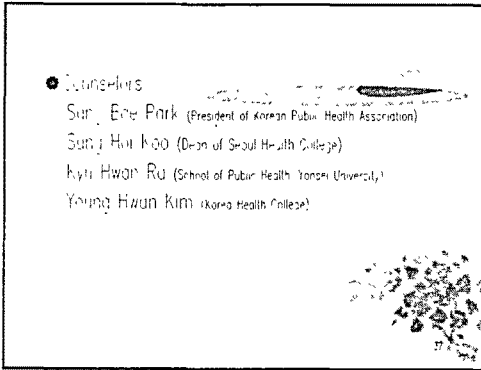 Counselors
Sung Bae Park (President of Korean Public Health Association)
Sung Hoi Koo (Dean of Seoul Health College)
Kyu Hwan Ra (School of Public Health Yonsei University)
Young Hwan Kim (Korea Health College)
37